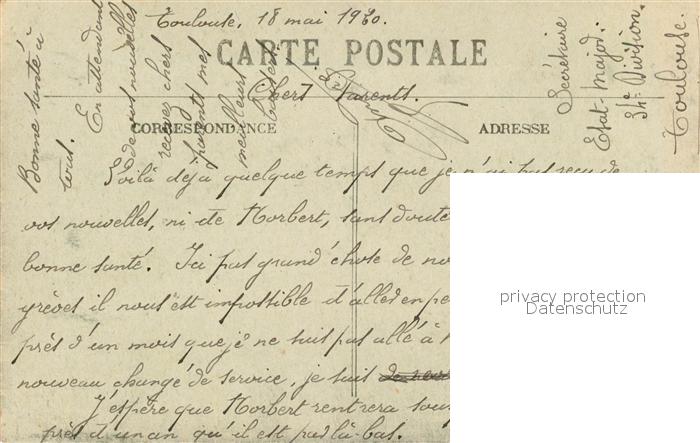 Toulouse, 18 mai 1920.
CARTE POSTALE
Chers Parents.
CORRESPONDANCE
ADRESSE
Voilà déjà quelque temps que je n'ai pas reçu de
vos nouvelles, ni de Norbert, sans doute
bonne santé. Ici pas grand'chose de no
grèves il nous est impossible d'aller en pe
près d'un mois que je ne suis pas allé à
nouveau changé de service, je suis
J'espère que Norbert rentrera
près d'un an qu'il est par là-bas.
Bonne santé à
tous. En attendant
de vos nouvelles
recevez chers
parents mes
meilleurs
baisers.
Secrétaire
Etat-Major.
34e Division.
Toulouse.
privacy protection
Datenschutz